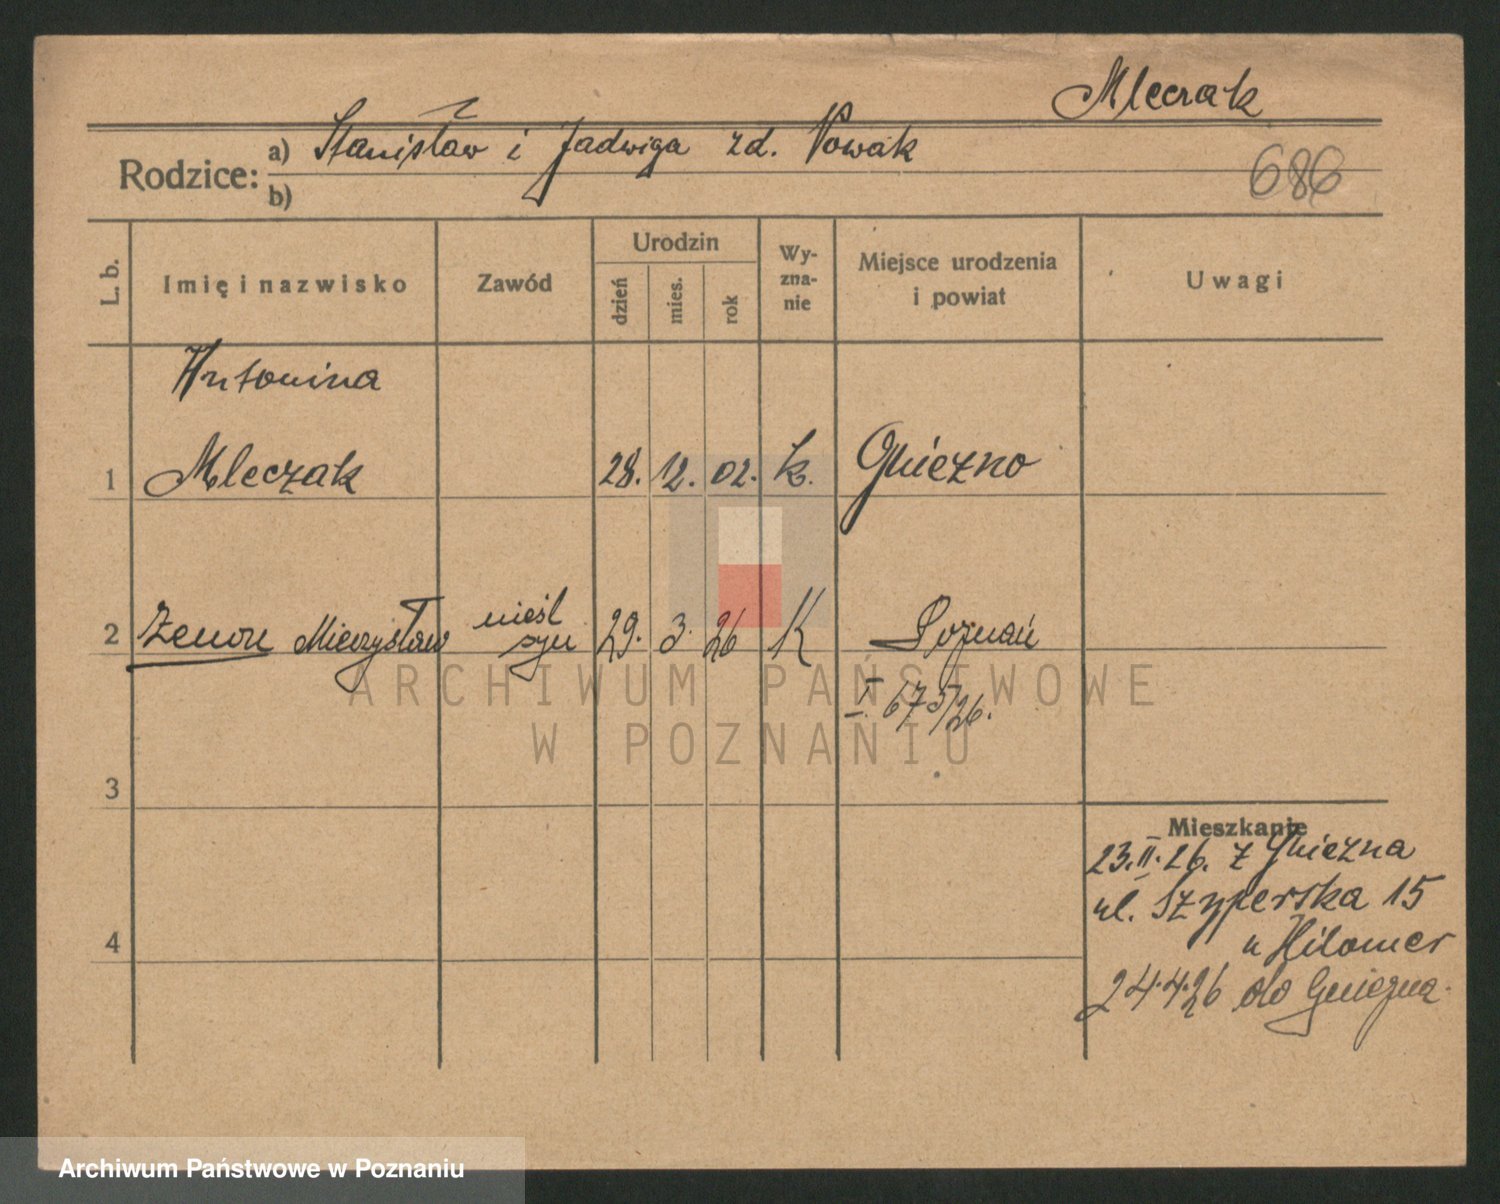 Mleczak
Rodzice: a) Stanisław i Jadwiga zd. Nowak
b)
686
L. b.
Imię i nazwisko
Zawód
Urodzin
dzień
mies.
rok
Wy-
zna-
nie
Miejsce urodzenia
i powiat
Uwagi
Antonina
1 Mleczak 28. 12. 02. k. Gniezno
2 Zenon Mieczysław nieśl syn 29. 3. 26 K Poznań
I. 675/26.
3
Mieszkanie
23.II.26. z Gniezna
ul. Szyperska 15
4
u Hilomer
24.4.26 do Gniezna.
ARCHIWUM PAŃSTWOWE
W POZNANIU
Archiwum Państwowe w Poznaniu